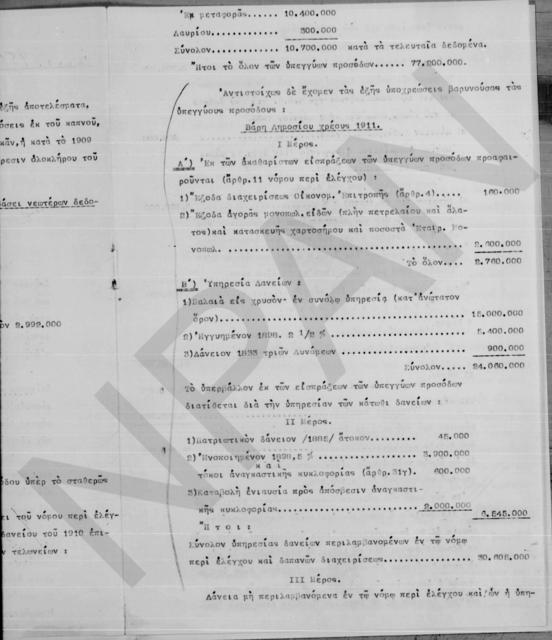 Ἐκ μεταφορᾶς...... 10.400.000
Λαυρίου............. 300.000
Σύνολον............ 10.700.000 κατὰ τὰ τελευταῖα δεδομένα.
Ἤτοι τὸ ὅλον τῶν ὑπεγγύων προσόδων.... 77.200.000.
Ἀντιστοίχως δὲ ἔχομεν τὰς ἑξῆς ὑποχρεώσεις βαρυνούσας τὰς
ὑπεγγύους προσόδους :
Βάρη Δημοσίου χρέους 1911.
Ι Μέρος.
Α') Ἐκ τῶν ἀκαθαρίστων εἰσπράξεων τῶν ὑπεγγύων προσόδων προαφαι-
ροῦνται (ἄρθρ.11 νόμου περὶ ἐλέγχου) :
1)Ἔξοδα διαχειρίσεως Οἰκονομ. Ἐπιτροπῆς (ἄρθρ.4).... 160.000
2)Ἔξοδα ἀγορᾶς μονοπωλ.εἰδῶν (πλὴν πετρελαίου καὶ ἅλα-
τος)καὶ κατασκευῆς χαρτοσήμου καὶ ποσοστὰ Ἑταιρ. Μο-
νοπωλ. ........................................... 2.600.000
Τὸ ὅλον.... 2.760.000
Β') Ὑπηρεσία Δανείων :
1)Παλαιὰ εἰς χρυσὸν· ἐν συνόλῳ ὑπηρεσία (κατ' ἀνώτατον
ὅρον)............................................. 15.000.000
2)Ἠγγυημένον 1898. 2 1/2 % ...................... 5.400.000
3)Δάνειον 1833 τριῶν Δυνάμεων .................... 900.000
Σύνολον..... 24.060.000
Τὸ ὑπερβάλλον ἐκ τῶν εἰσπράξεων τῶν ὑπεγγύων προσόδων
διατίθεται διὰ τὴν ὑπηρεσίαν τῶν κάτωθι δανείων :
ΙΙ Μέρος.
1)Πατριωτικὸν δάνειον /1885/ ἄτοκον......... 45.000
2) Ἑνοποιημένον 1898,5 % .................. 3.900.000
καὶ
τόκοι ἀναγκαστικῆς κυκλοφορίας (ἄρθρ.31γ). 600.000
3)Καταβολὴ ἐνιαυσία πρὸς ἀπόσβεσιν ἀναγκαστι-
κῆς κυκλοφορίας........................... 2.000.000
6.545.000
Ἤτοι:
Σύνολον ὑπηρεσίας δανείων περιλαμβανομένων ἐν τῷ νόμῳ
περὶ ἐλέγχου καὶ δαπανῶν διαχειρίσεως............. 30.605.000
ΙΙΙ Μέρος.
Δάνεια μὴ περιλαμβανόμενα ἐν τῷ νόμῳ περὶ ἐλέγχου καὶ ὧν ἡ ὑπη-
ἑξῆς ἀποτελέσματα,
όσεις ἐκ τοῦ καπνοῦ,
κᾶν, ἡ κατὰ τὸ 1909
ρεσιν ὁλοκλήρου τοῦ
βάσει νεωτέρων δεδο-
ον 2.992.000
όδου ὑπὲρ τὸ σταθερῶς
ει τοῦ νόμου περὶ ἐλέγ-
δανείου τοῦ 1910 ἐπι-
ν τελωνείων :
NPAN